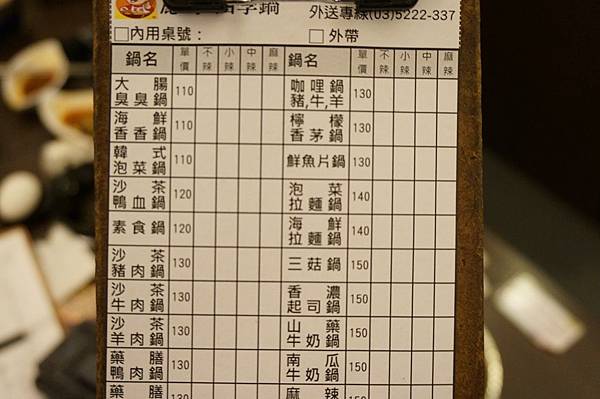 鍋
外送專線(03)5222-337
□內用桌號： □外帶
鍋名 單價 不辣 小辣 中辣 麻辣 鍋名 單價 不辣 小辣 中辣 麻辣
大腸臭臭鍋 110 咖哩鍋豬,牛,羊 130
海鮮香香鍋 110 檸檬香茅鍋 130
韓式泡菜鍋 110 鮮魚片鍋 130
沙茶鴨血鍋 120 泡菜拉麵鍋 140
素食鍋 120 海鮮拉麵鍋 140
沙茶豬肉鍋 130 三菇鍋 150
沙茶牛肉鍋 130 香濃起司鍋 150
沙茶羊肉鍋 130 山藥牛奶鍋 150
藥膳鴨肉鍋 130 南瓜牛奶鍋 150
藥膳 130 麻辣 150